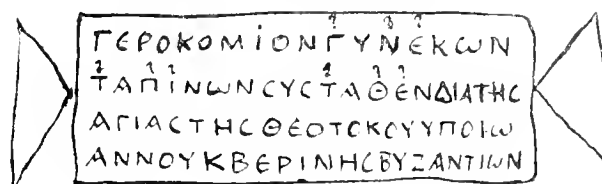 ΓΕΡΟΚΟΜΙΟΝΓΥΝΕΚωΝ
ΤΑΠΙΝωΝCYCΤΑΘΕΝΔΙΑΤΗC
ΑΓΙΑCΤΗCΘΕΟΤΟΚΟΥΥΠΟΙω
ΑΝΝΟΥΚΒΕΡΙΝΗCΒΥΖΑΝΤΙωΝ